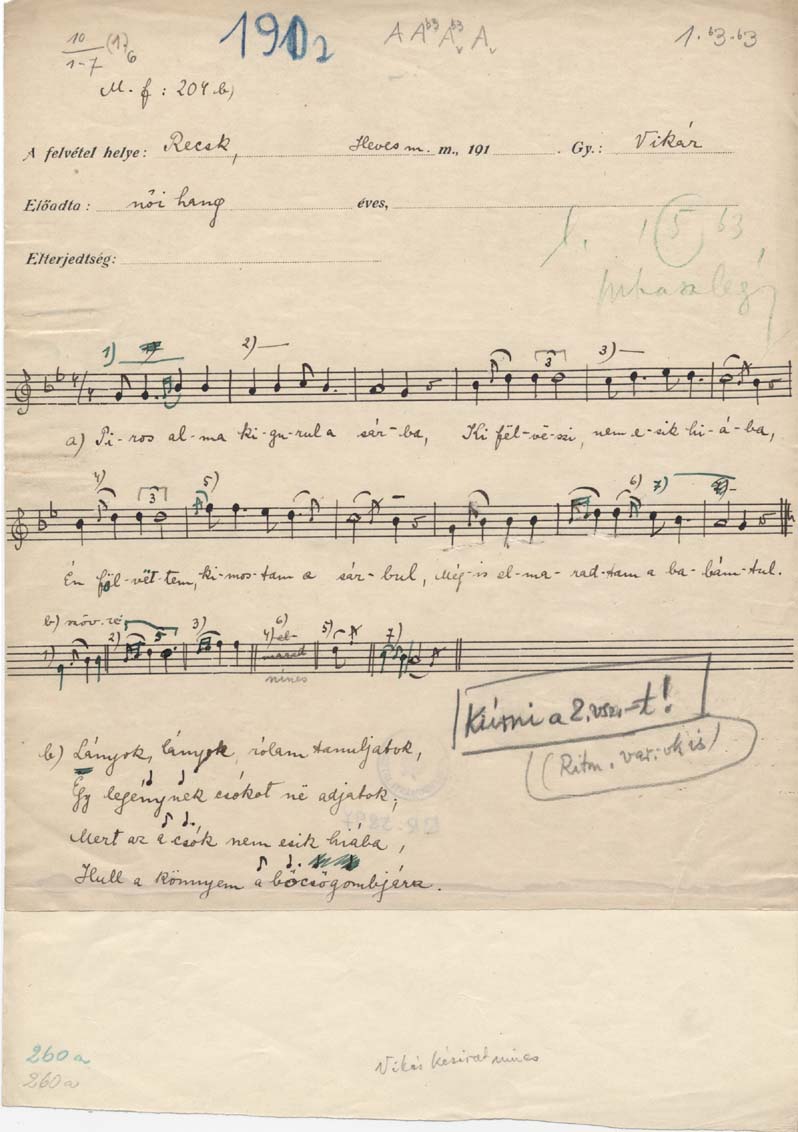 10
1-7 (1)6
1902
A A b3 A b3 v A v
1 · b3 · b3
M. f : 204 b)
A felvétel helye: Recsk, Heves m. m., 191 . Gy.: Vikár
Előadta: női hang éves,
1 5 b3
Elterjedtség:
1) 2) 3) 3
a) Pi-ros al-ma ki-gu-rul a sár-ba, Ki föl-vë-szi, nem e-sik hi-á-ba,
4) 3 5) 6) 7)
Én föl-vët-tem, ki-mos-tam a sár-bul, Még-is el-ma-rad-tam a ba-bám-tul.
b)
1) 2) 5 3) 4) 6) el- marad nincs 5) 7)
Kiírni a 2. vsz.-t!
(Ritm. var.-ok is)
b) Lányok, lányok, rólam tanuljatok,
Egy legénynek csókot në adjatok;
Mert az a csók nem esik hiába,
Hull a könnyem a bőcsőgombjára.
260a
260a
Vikár kézirat nincs